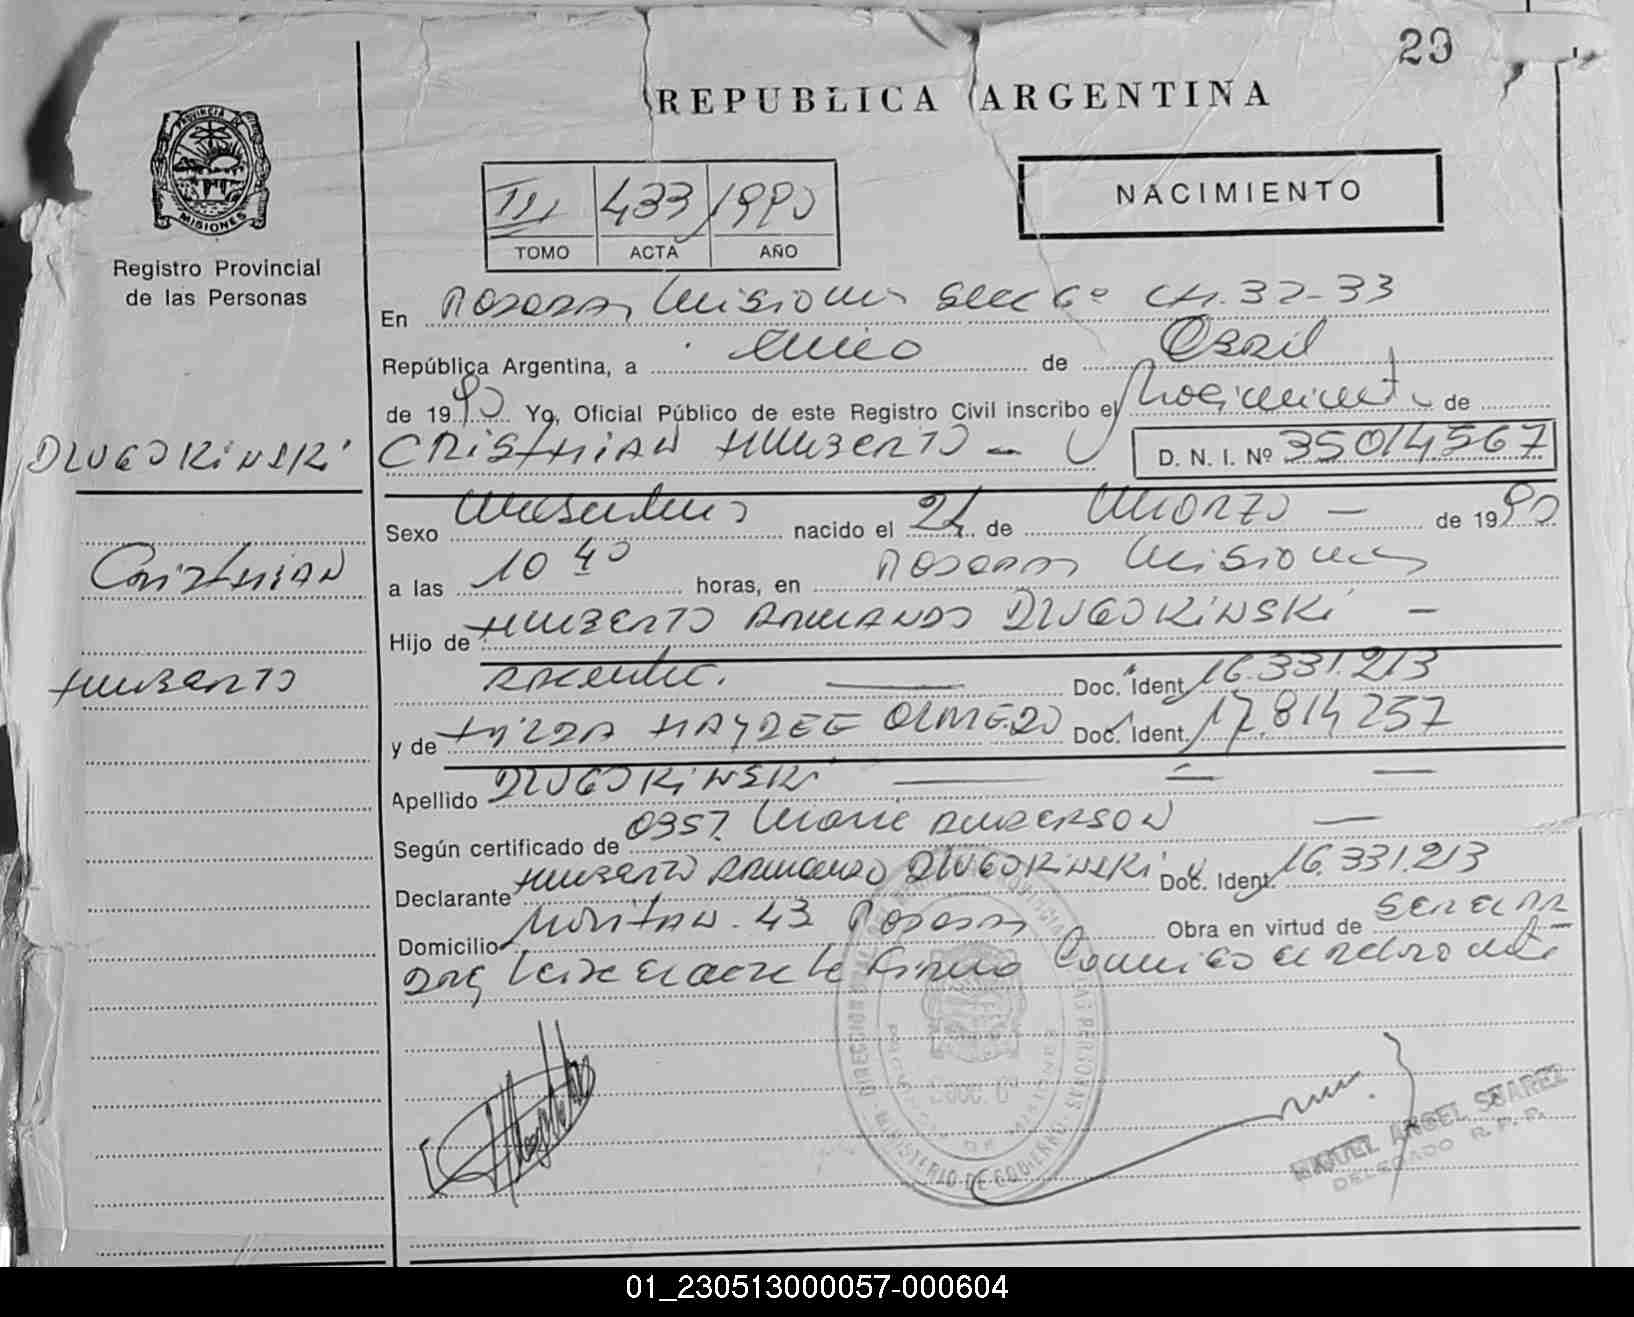 29
REPUBLICA ARGENTINA
PROVINCIA DE
MISIONES
Registro Provincial
de las Personas
III 433 1990
TOMO ACTA AÑO
NACIMIENTO
En Posadas, Misiones Secc 6º CH. 32-33
República Argentina, a cinco de Abril
de 1990 Yo, Oficial Público de este Registro Civil inscribo el Nacimiento de
DLUGOKINSKI CRISTHIAN HUMBERTO - D. N. I. Nº 35014567
Sexo Masculino nacido el 24 de Marzo - de 1990
CRISTHIAN
a las 10 40 horas, en POSADAS Misiones
Hijo de HUMBERTO ARMANDO DLUGOKINSKI -
HUMBERTO
Argentino. Doc. Ident. 16.331.213
y de HILDA HAYDEE OLMEDO Doc. Ident. 17.814257
Apellido DLUGOKINSKI
Según certificado de OBST. Marie ANDERSON
Declarante HUMBERTO ARMANDO DLUGOKINSKI Doc. Ident. 16.331.213
Domicilio 43 POSADAS Obra en virtud de
firma Conmigo el declarante
DIRECCION PROVINCIAL DE LAS PERSONAS
MINISTERIO DE GOBIERNO
MIGUEL ANGEL SUAREZ
DELEGADO R. P. P.
01_230513000057-000604